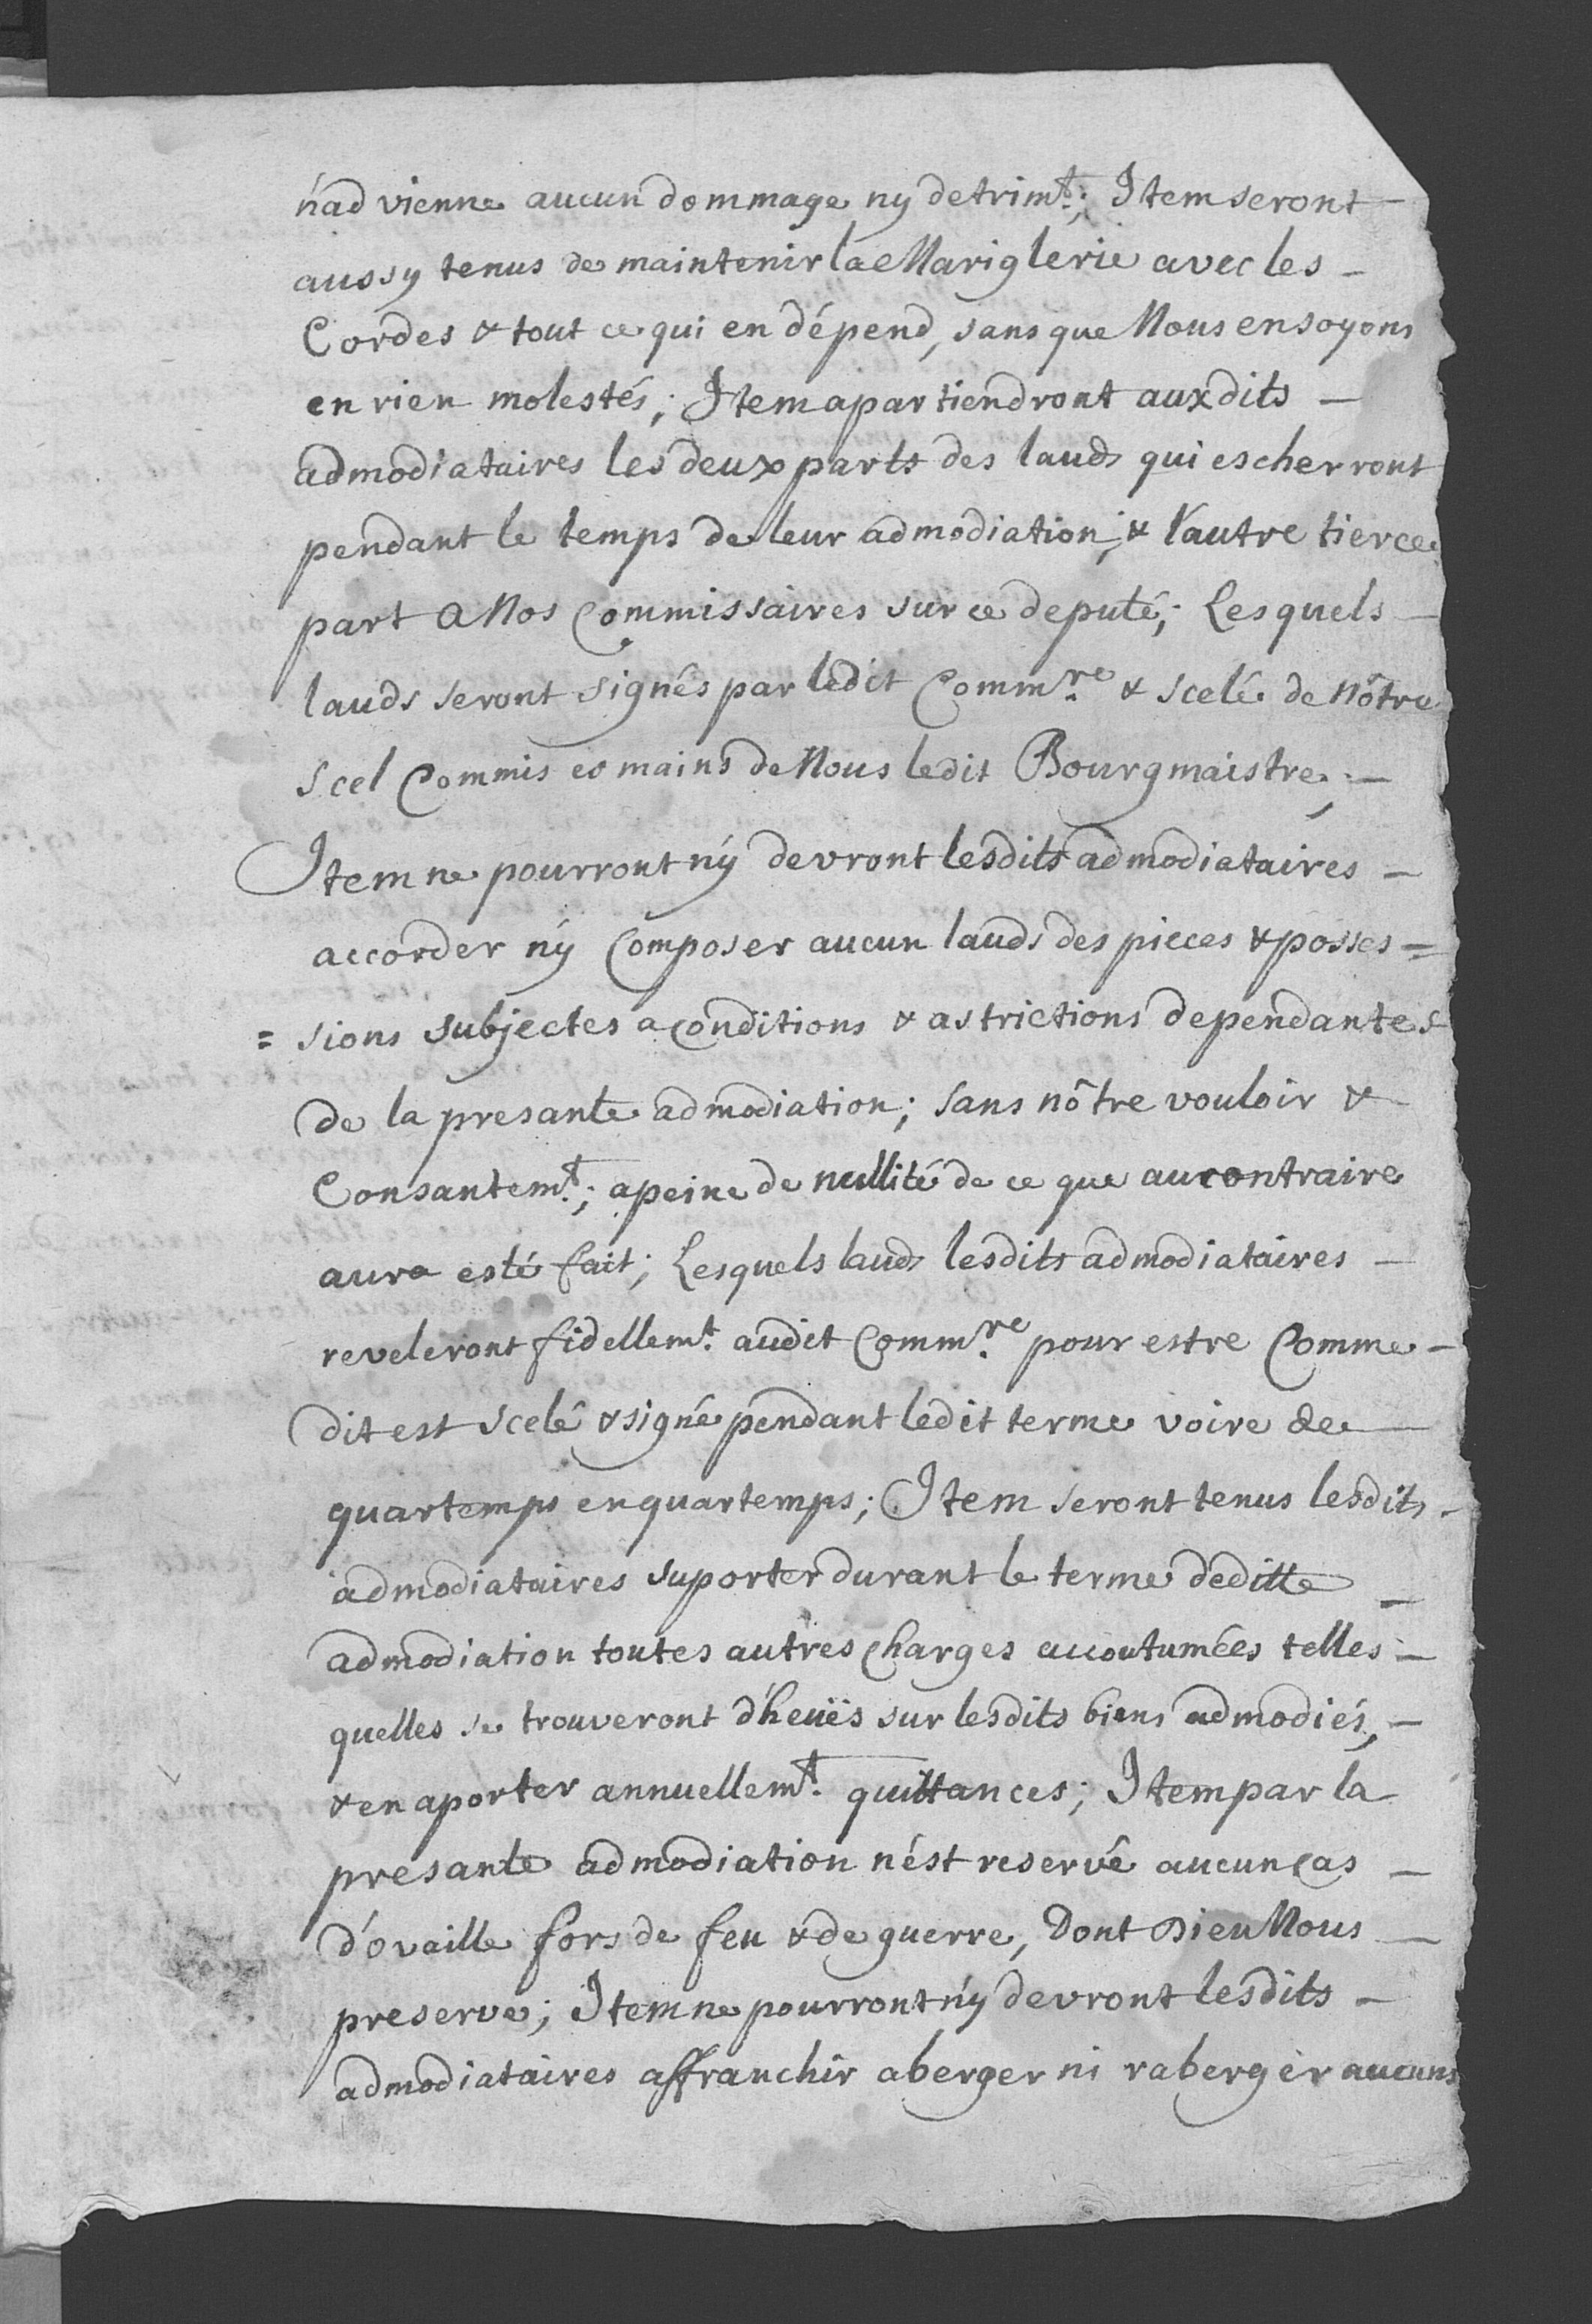 n'advienne aucun dommage ny detrimt.; Item seront –
aussy tenus de maintenir la Mariglerie avec les –
Cordes & tout ce qui en dépend, sans que Nous en soyons
en rien molestés; Item apartiendront auxdits –
admodiataires les deux parts des lauds qui escherront
pendant le temps de leur admodiation; & l'autre tierce
part a Nos Commissaires sur ce deputé; Lesquels –
lauds seront signés par ledit Commre. & scelé de Nôtre
Scel Commis es mains de Nous ledit Bourgmaistre; –
Item ne pourront n'y devront lesdits admodiataires –
accorder n'y Composer aucun lauds des pieces & posses=
=sions subjectes a conditions & astrictions dependantes
de la presante admodiation; sans nôtre vouloir &
Consantemt.; a peine de nullité de ce que au contraire
aura esté fait; Lesquels lauds lesdits admodiataires –
reveleront fidellemt. audit Commre. pour estre Comme –
dit est scelé & signé pendant ledit terme voire de –
quartemps en quartemps; Item seront tenus lesdits –
admodiataires suporter durant le terme deditte –
admodiation toutes autres charges accoutumées telles –
quelles se trouveront d'heuës sur lesdits biens admodiés, –
& en aporter annuellemt. quittances; Item par la
presante admodiation n'ést reservé aucun cas –
d'ovaille fors de feu & de guerre, Dont Dieu Nous –
preserve; Item ne pourront n'y devront lesdits –
admodiataires affranchir aberger ni raberger aucuns